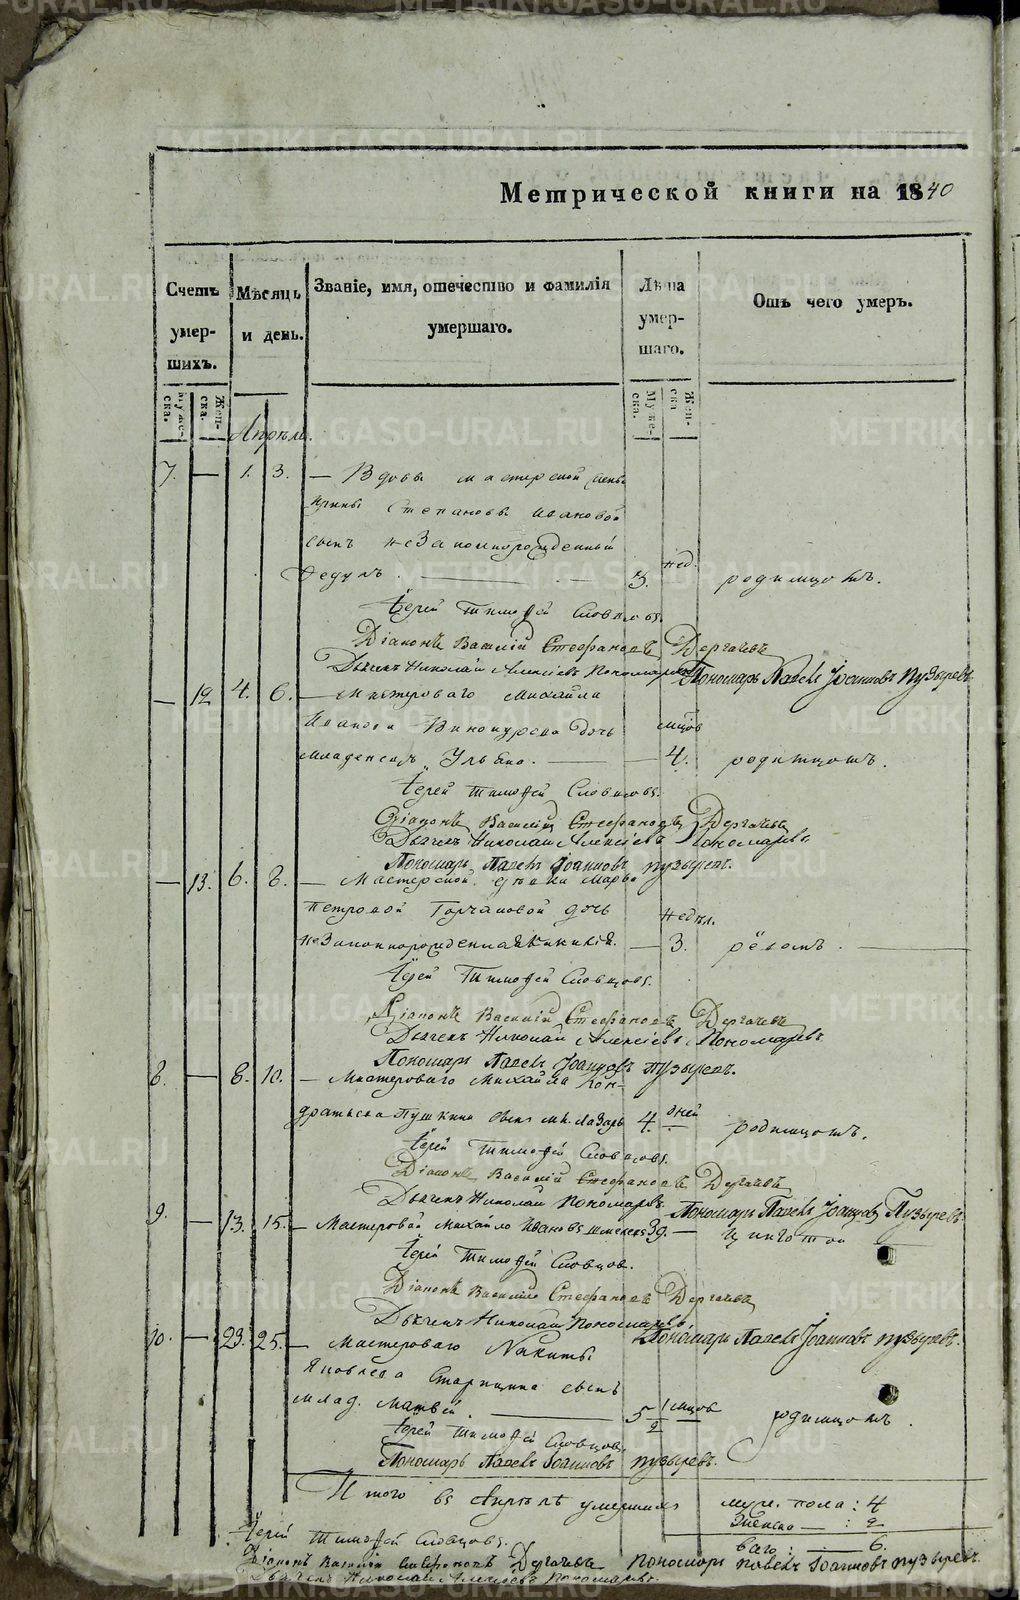 Метрической книги на 1840
Счетъ умершихъ.
Мѣсяцъ и день.
Званіе, имя, отечество и фамилія умершаго.
Лѣта умершаго.
Отъ чего умеръ.
Мужеска.
Женска.
Мужеска.
Женска
Апрѣль.
7. — 1. 3. — Вдовы мастерской жены
Ирины Степановы Ивановой
сынъ незаконнорожденный
Федулъ. — 3. нед. родимцомъ.
Іерей Тимофей Словцовъ.
Діаконъ Василій Стефановъ Дергачевъ
Дьячекъ Николай Алексѣевъ Пономаревъ Пономарь Павелъ Іоанновъ Пузыревъ.
— 12 4. 6. — Мастероваго Михайла
Иванова Винокурова дочь мцов
младенецъ Ульяна. — 4. родимцомъ.
Іерей Тимофей Словцовъ.
Діаконъ Василій Стефановъ Дергачевъ
Дьячекъ Николай Алексѣевъ Пономаревъ.
Пономарь Павелъ Іоанновъ Пузыревъ.
— 13. 6. 8. — Мастерской дѣвки Марьи
Петровой Горчаковой дочь недѣл.
незаконнорожденная — 3. рёвомъ. —
Іерей Тимофей Словцовъ.
Діаконъ Василій Стефановъ Дергачевъ
Дьячекъ Николай Алексѣевъ Пономаревъ
Пономарь Павелъ Іоанновъ Пузыревъ.
8. — 8. 10. — Мастероваго Михайла Кон-
дратьева Пушкина сынъ мл. Лазарь 4. дней родимцомъ.
Іерей Тимофей Словцовъ.
Діаконъ Василій Стефановъ Дергачевъ
Дьячекъ Николай Пономаревъ. Пономарь Павелъ Іоанновъ Пузыревъ
9. — 13. 15. — Мастеровой Михайло Ивановъ 39. — цынготой
Іерей Тимофей Словцов.
Діаконъ Василій Стефановъ Дергачевъ
Дьячекъ Николай Пономаревъ. Пономарь Павелъ Іоанновъ Пузыревъ.
10. — 23. 25. — Мастероваго Никиты
Яковлева Старицина сынъ
млад. Матвей. — 5 1/2 мцов родимцомъ.
Іерей Тимофей Словцовъ.
Пономарь Павелъ Іоанновъ Пузыревъ.
Итого въ Апрѣлѣ умершихъ муж. пола: 4
женска — : 2
всего: — 6.
Іерей Тимофей Словцовъ.
Діаконъ Василій Стефановъ Дергачевъ Пономарь Павелъ Іоанновъ Пузыревъ.
Дьячекъ Николай Алексѣевъ Пономаревъ.
METRIKI.GASO-URAL.RU